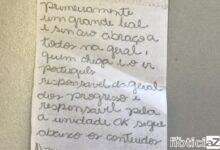 primeramente
um grande leal
e sincero abraço a
todos na geral,
quem chega é o ir
português
responsavel da geral
do progresso e
responsavel pela
a unidade CK segue
abaixo os conteúdos
Noticiaz